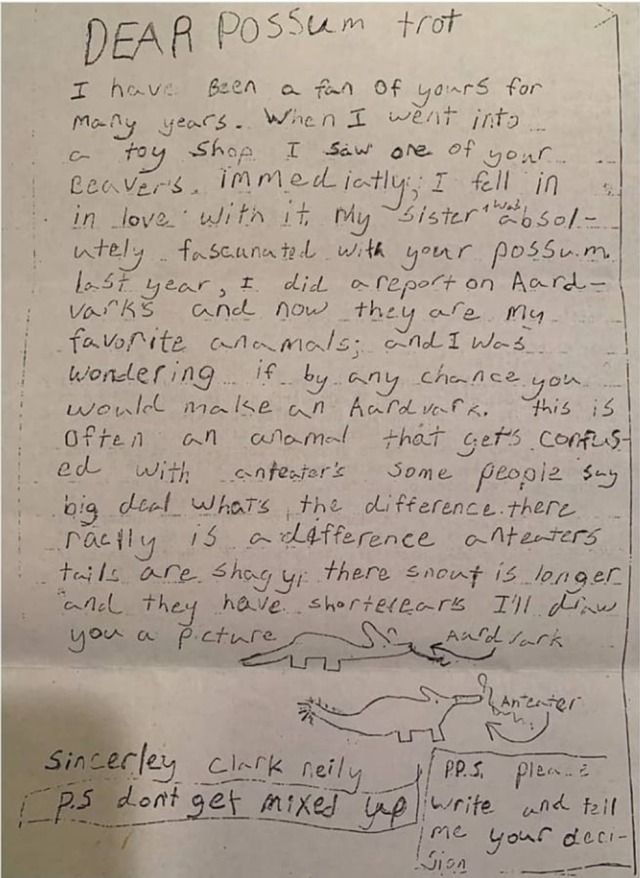 DEAR POSSUM trot
I have Been a fan of yours for
many years. When I went into
a toy shop I saw one of your
Beavers. immediatly; I fell in
in love with it. My sister was absol-
utely fascunated with your possum.
Last year, I did a report on Aard-
varks and now they are my
favorite anamals; and I was
wondering if by any chance you
would make an Aardvark. this is
often an anamal that gets confus-
ed with anteater's some people say
big deal whats the difference. there
raelly is a difference anteaters
tails are shagy, there snout is longer
and they have shorter ears I'll draw
you a picture
Aardvark
Anteater
Sincerley Clark neily
P.S don't get mixed up
P.P.S. please
write and tell
me your deci-
sion